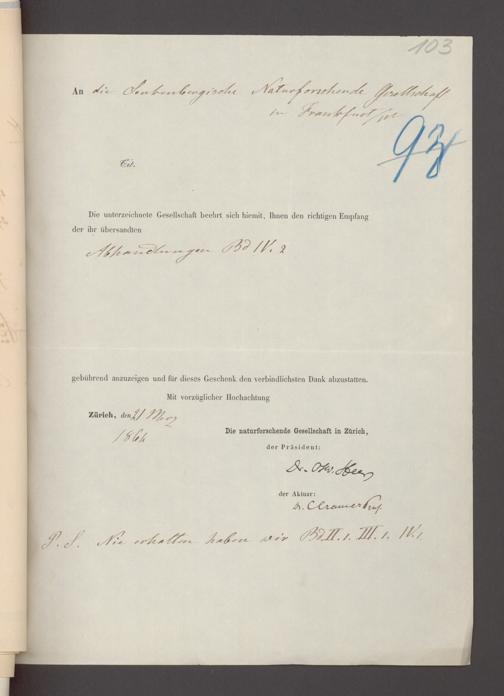 103
An die Senkenbergische Naturforschende Gesellschaft
in Frankfurt a/M
98
Tit.
Die unterzeichnete Gesellschaft beehrt sich hiemit, Ihnen den richtigen Empfang
der ihr übersandten
Abhandlungen Bd IV. 2
gebührend anzuzeigen und für dieses Geschenk den verbindlichsten Dank abzustatten.
Mit vorzüglicher Hochachtung
Zürich, den 21 März
1864
Die naturforschende Gesellschaft in Zürich,
der Präsident:
Dr. Osw. Heer
der Aktuar:
Dr. C. Cramer Prof.
P. S. Nie erhalten haben wir Bd II. 1. III. 1. IV. 1.